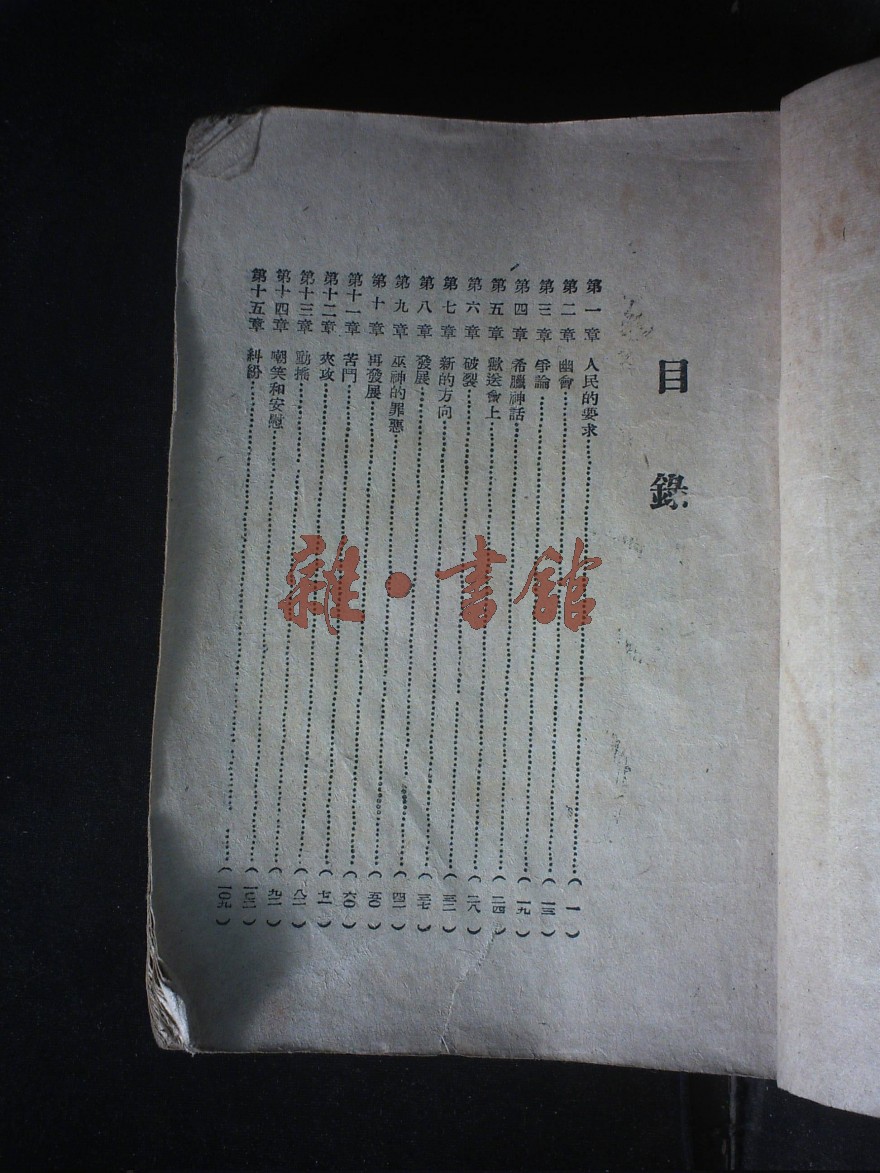 目錄
第一章 人民的要求……(一)
第二章 幽會……(一三)
第三章 爭論……(一九)
第四章 希臘神話……(二四)
第五章 歡送會上……(二八)
第六章 破裂……
第七章 新的方向……
第八章 發展……(三七)
第九章 巫神的罪惡……
第十章 再發展……(五〇)
第十一章 苦鬥……(六〇)
第十二章 夾攻……(七一)
第十三章 動搖……(八二)
第十四章 嘲笑和安慰……(九二)
第十五章 糾紛……
雜·書館